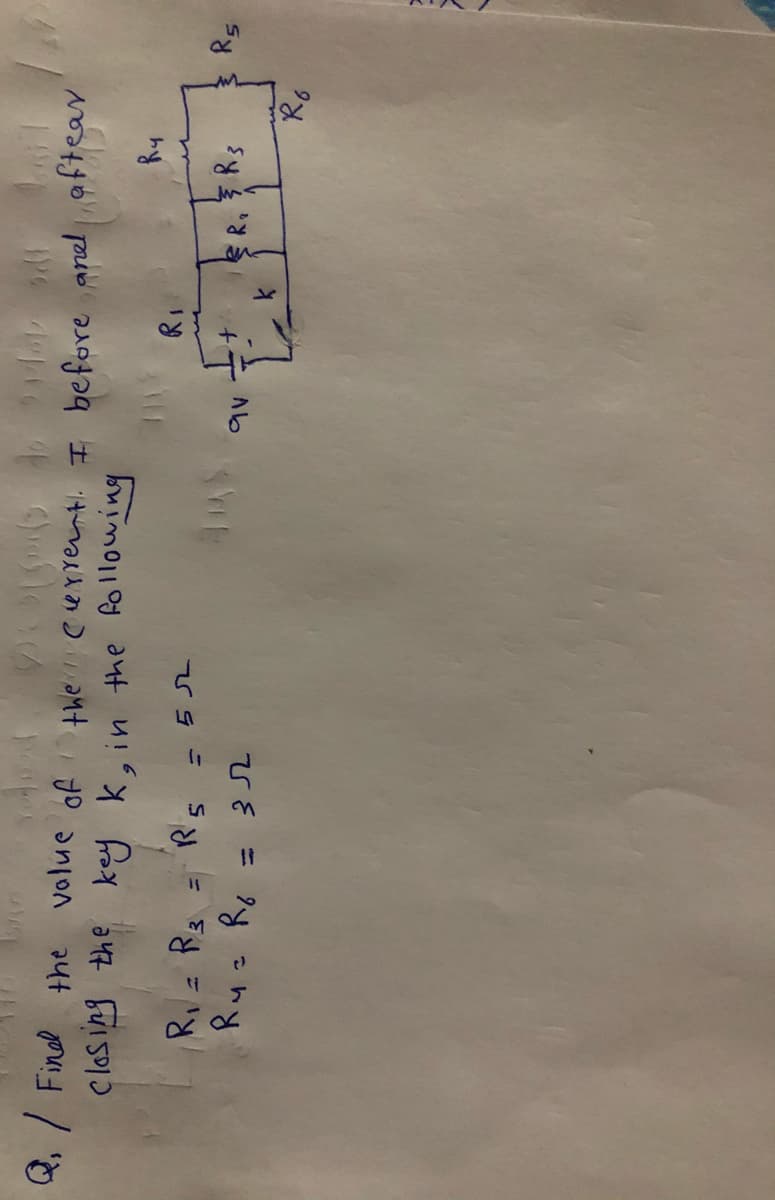 Q1 / Find the value of the current I before and aftear
closing the key K, in the following
R1 = R3 = R5 = 5 Ω
R4 = R6 = 3 Ω
R1
R4
9V
+
-
K
R3
R5
R6